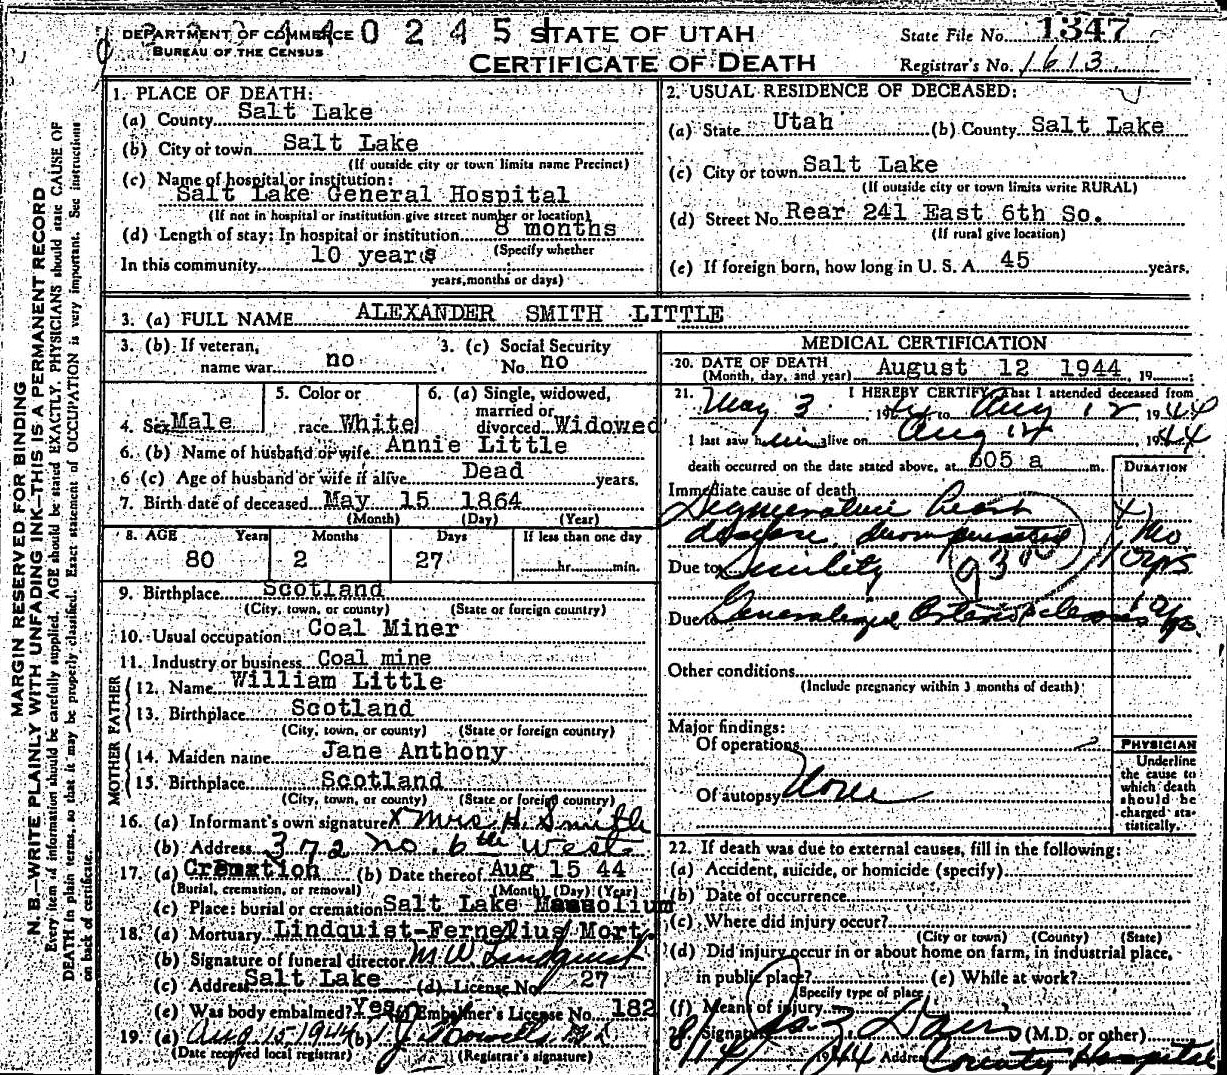 DEPARTMENT OF COMMERCE 0 2 4 5 STATE OF UTAH State File No. 1347
BUREAU OF THE CENSUS
CERTIFICATE OF DEATH Registrar's No. 1613
MARGIN RESERVED FOR BINDING
N. B.—WRITE PLAINLY WITH UNFADING INK—THIS IS A PERMANENT RECORD
Every item of information should be carefully supplied. AGE should be stated EXACTLY. PHYSICIANS should state CAUSE OF
DEATH in plain terms, so that it may be properly classified. Exact statement of OCCUPATION is very important. See instructions
on back of certificate.
1. PLACE OF DEATH:
(a) County Salt Lake
(b) City or town Salt Lake
(If outside city or town limits name Precinct)
(c) Name of hospital or institution:
Salt Lake General Hospital
(If not in hospital or institution give street number or location)
(d) Length of stay: In hospital or institution 8 months
(Specify whether
In this community 10 years
years, months or days)
2. USUAL RESIDENCE OF DECEASED:
(a) State Utah (b) County Salt Lake
(c) City or town Salt Lake
(If outside city or town limits write RURAL)
(d) Street No. Rear 241 East 6th So.
(If rural give location)
(e) If foreign born, how long in U. S. A. 45 years.
3. (a) FULL NAME ALEXANDER SMITH LITTLE
3. (b) If veteran, 3. (c) Social Security
name war no No. no
4. Sex Male
5. Color or
race White
6. (a) Single, widowed,
married or
divorced Widowed
6. (b) Name of husband or wife Annie Little
6 (c) Age of husband or wife if alive Dead years.
7. Birth date of deceased May 15 1864
(Month) (Day) (Year)
8. AGE Years Months Days If less than one day
80 2 27 hr. min.
9. Birthplace Scotland
(City, town, or county) (State or foreign country)
10. Usual occupation Coal Miner
11. Industry or business Coal mine
FATHER
12. Name William Little
13. Birthplace Scotland
(City, town, or county) (State or foreign country)
MOTHER
14. Maiden name Jane Anthony
15. Birthplace Scotland
(City, town, or county) (State or foreign country)
16. (a) Informant's own signature X Mrs. H. Smith
(b) Address 372 no. 6th West
17. (a) Cremation (b) Date thereof Aug 15 44
(Burial, cremation, or removal) (Month) (Day) (Year)
(c) Place: burial or cremation Salt Lake Mausolium
18. (a) Mortuary Lindquist-Fernelius Mort.
(b) Signature of funeral director M W Lindquist
(c) Address Salt Lake (d) License No. 27
(e) Was body embalmed? Yes (f) Embalmer's License No. 182
19. (a) Aug 15, 1944 (b)
(Date received local registrar) (Registrar's signature)
MEDICAL CERTIFICATION
20. DATE OF DEATH
(Month, day, and year) August 12 1944, 19
21. I HEREBY CERTIFY, That I attended deceased from
May 3, 1944 to Aug 12, 1944
I last saw him alive on Aug 12, 1944
death occurred on the date stated above, at 605 a m.
DURATION
Immediate cause of death
Degenerative heart
disease decompensated 4 Mo
Due to Senility 10 yrs
Due to Generalized Arteriosclerosis 10 yrs.
Other conditions
(Include pregnancy within 3 months of death)
Major findings:
Of operations
Of autopsy None
PHYSICIAN
Underline
the cause to
which death
should be
charged sta-
tistically.
22. If death was due to external causes, fill in the following:
(a) Accident, suicide, or homicide (specify)
(b) Date of occurrence
(c) Where did injury occur?
(City or town) (County) (State)
(d) Did injury occur in or about home on farm, in industrial place,
in public place? (e) While at work?
Specify type of place
(f) Means of injury
Signature (M.D. or other)
8/14 1944 Address County Hospital